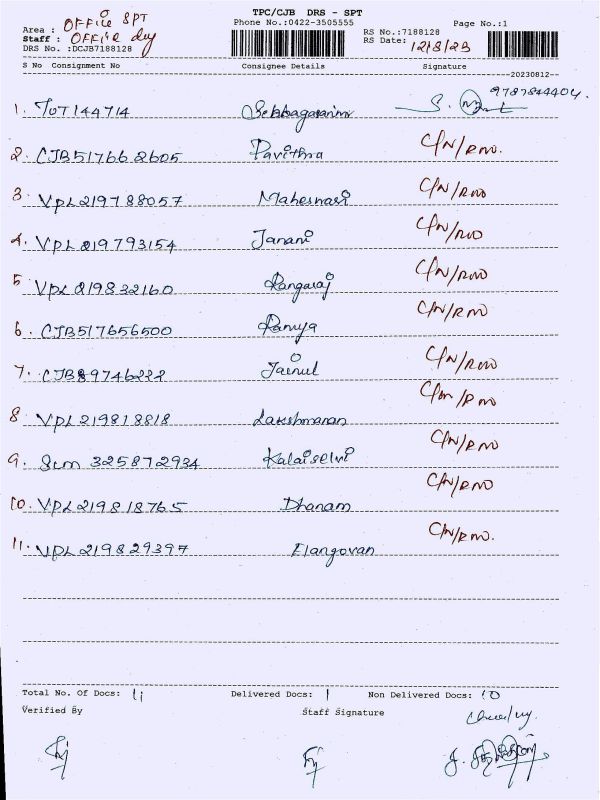 TPC/CJB DRS - SPT
Area : Office SPT
Phone No.:0422-3505555
Page No.:1
Staff : Office dey
RS No.:7188128
DRS No. :DCJB7188128
RS Date: 12/8/23
S No Consignment No Consignee Details Signature
20230812
9787844404.
1. TUT144714
2. CJB517662605 Pavithra C/N/RNO.
3. VPL219788057 Maheswari C/N/RNO
4. VPL219793154 Janani C/N/RNO
5 VPL219832160 Rangaraj C/N/RNO
6. CJB517656500 Ramya C/N/RNO
7. Jainul C/N/RNO
8 VPL219818818 Lakshmanan C/N/RNO
9. 325872934 Kalaiselvi C/N/RNO
10. VPL219818765 Dhanam C/N/RNO
11. VPL219829397 Elangovan C/N/RNO.
Total No. Of Docs: 11 Delivered Docs: 1 Non Delivered Docs: 10
Verified By Staff Signature